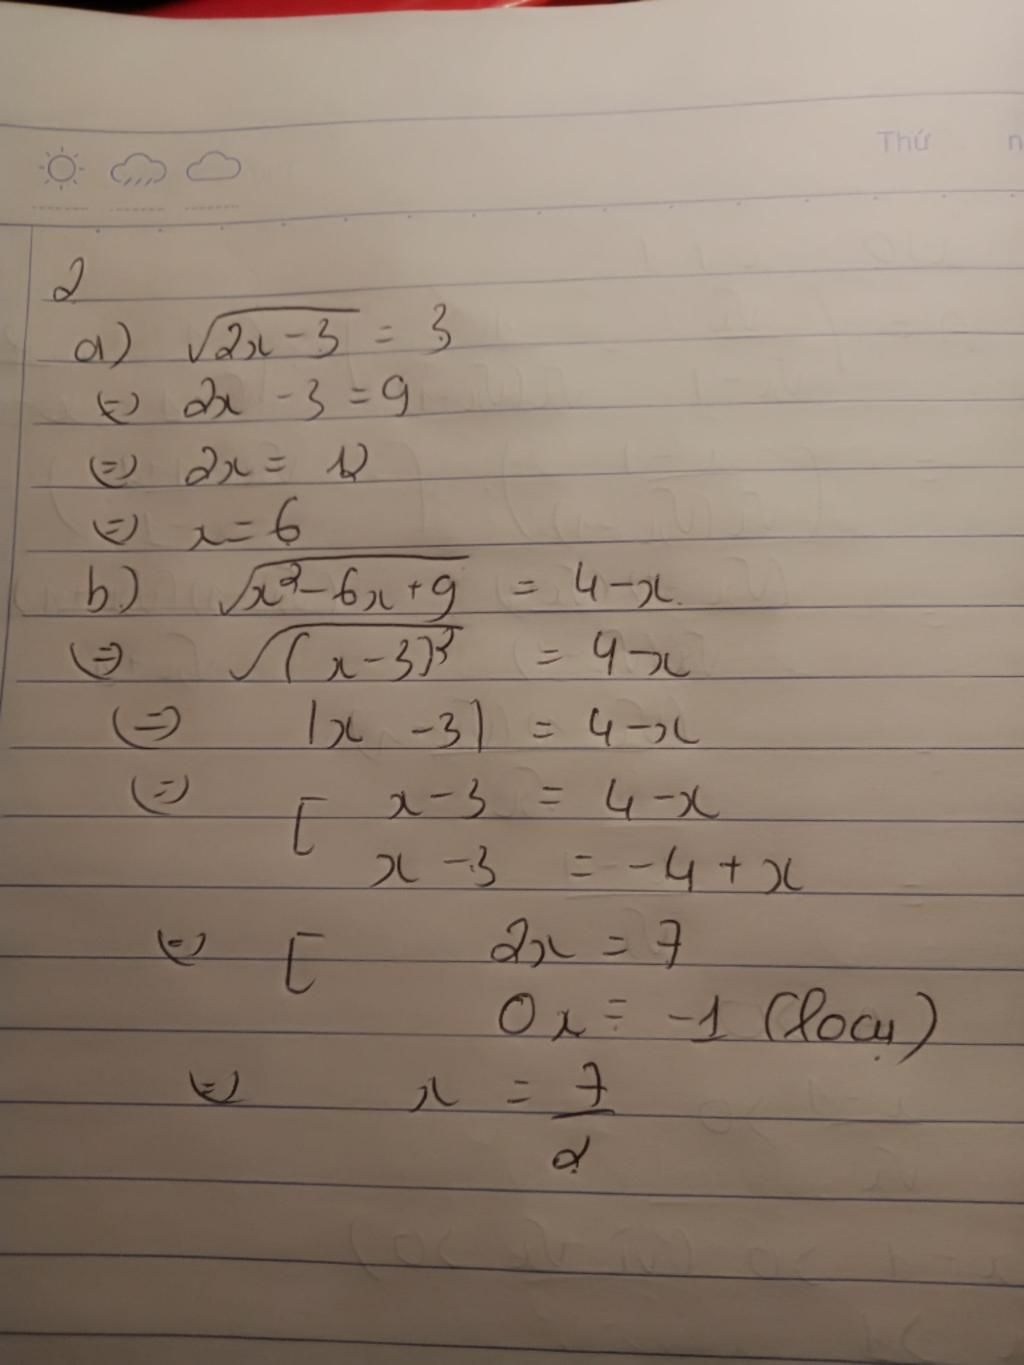 Thứ n
2
a) √(2x - 3) = 3
⇔ 2x - 3 = 9
⇔ 2x = 12
⇔ x = 6
b) √(x² - 6x + 9) = 4 - x
⇔ √((x - 3)²) = 4 - x
⇔ |x - 3| = 4 - x
⇔ [ x - 3 = 4 - x
x - 3 = -4 + x
⇔ [ 2x = 7
0x = -1 (loại)
⇔ x = 7/2